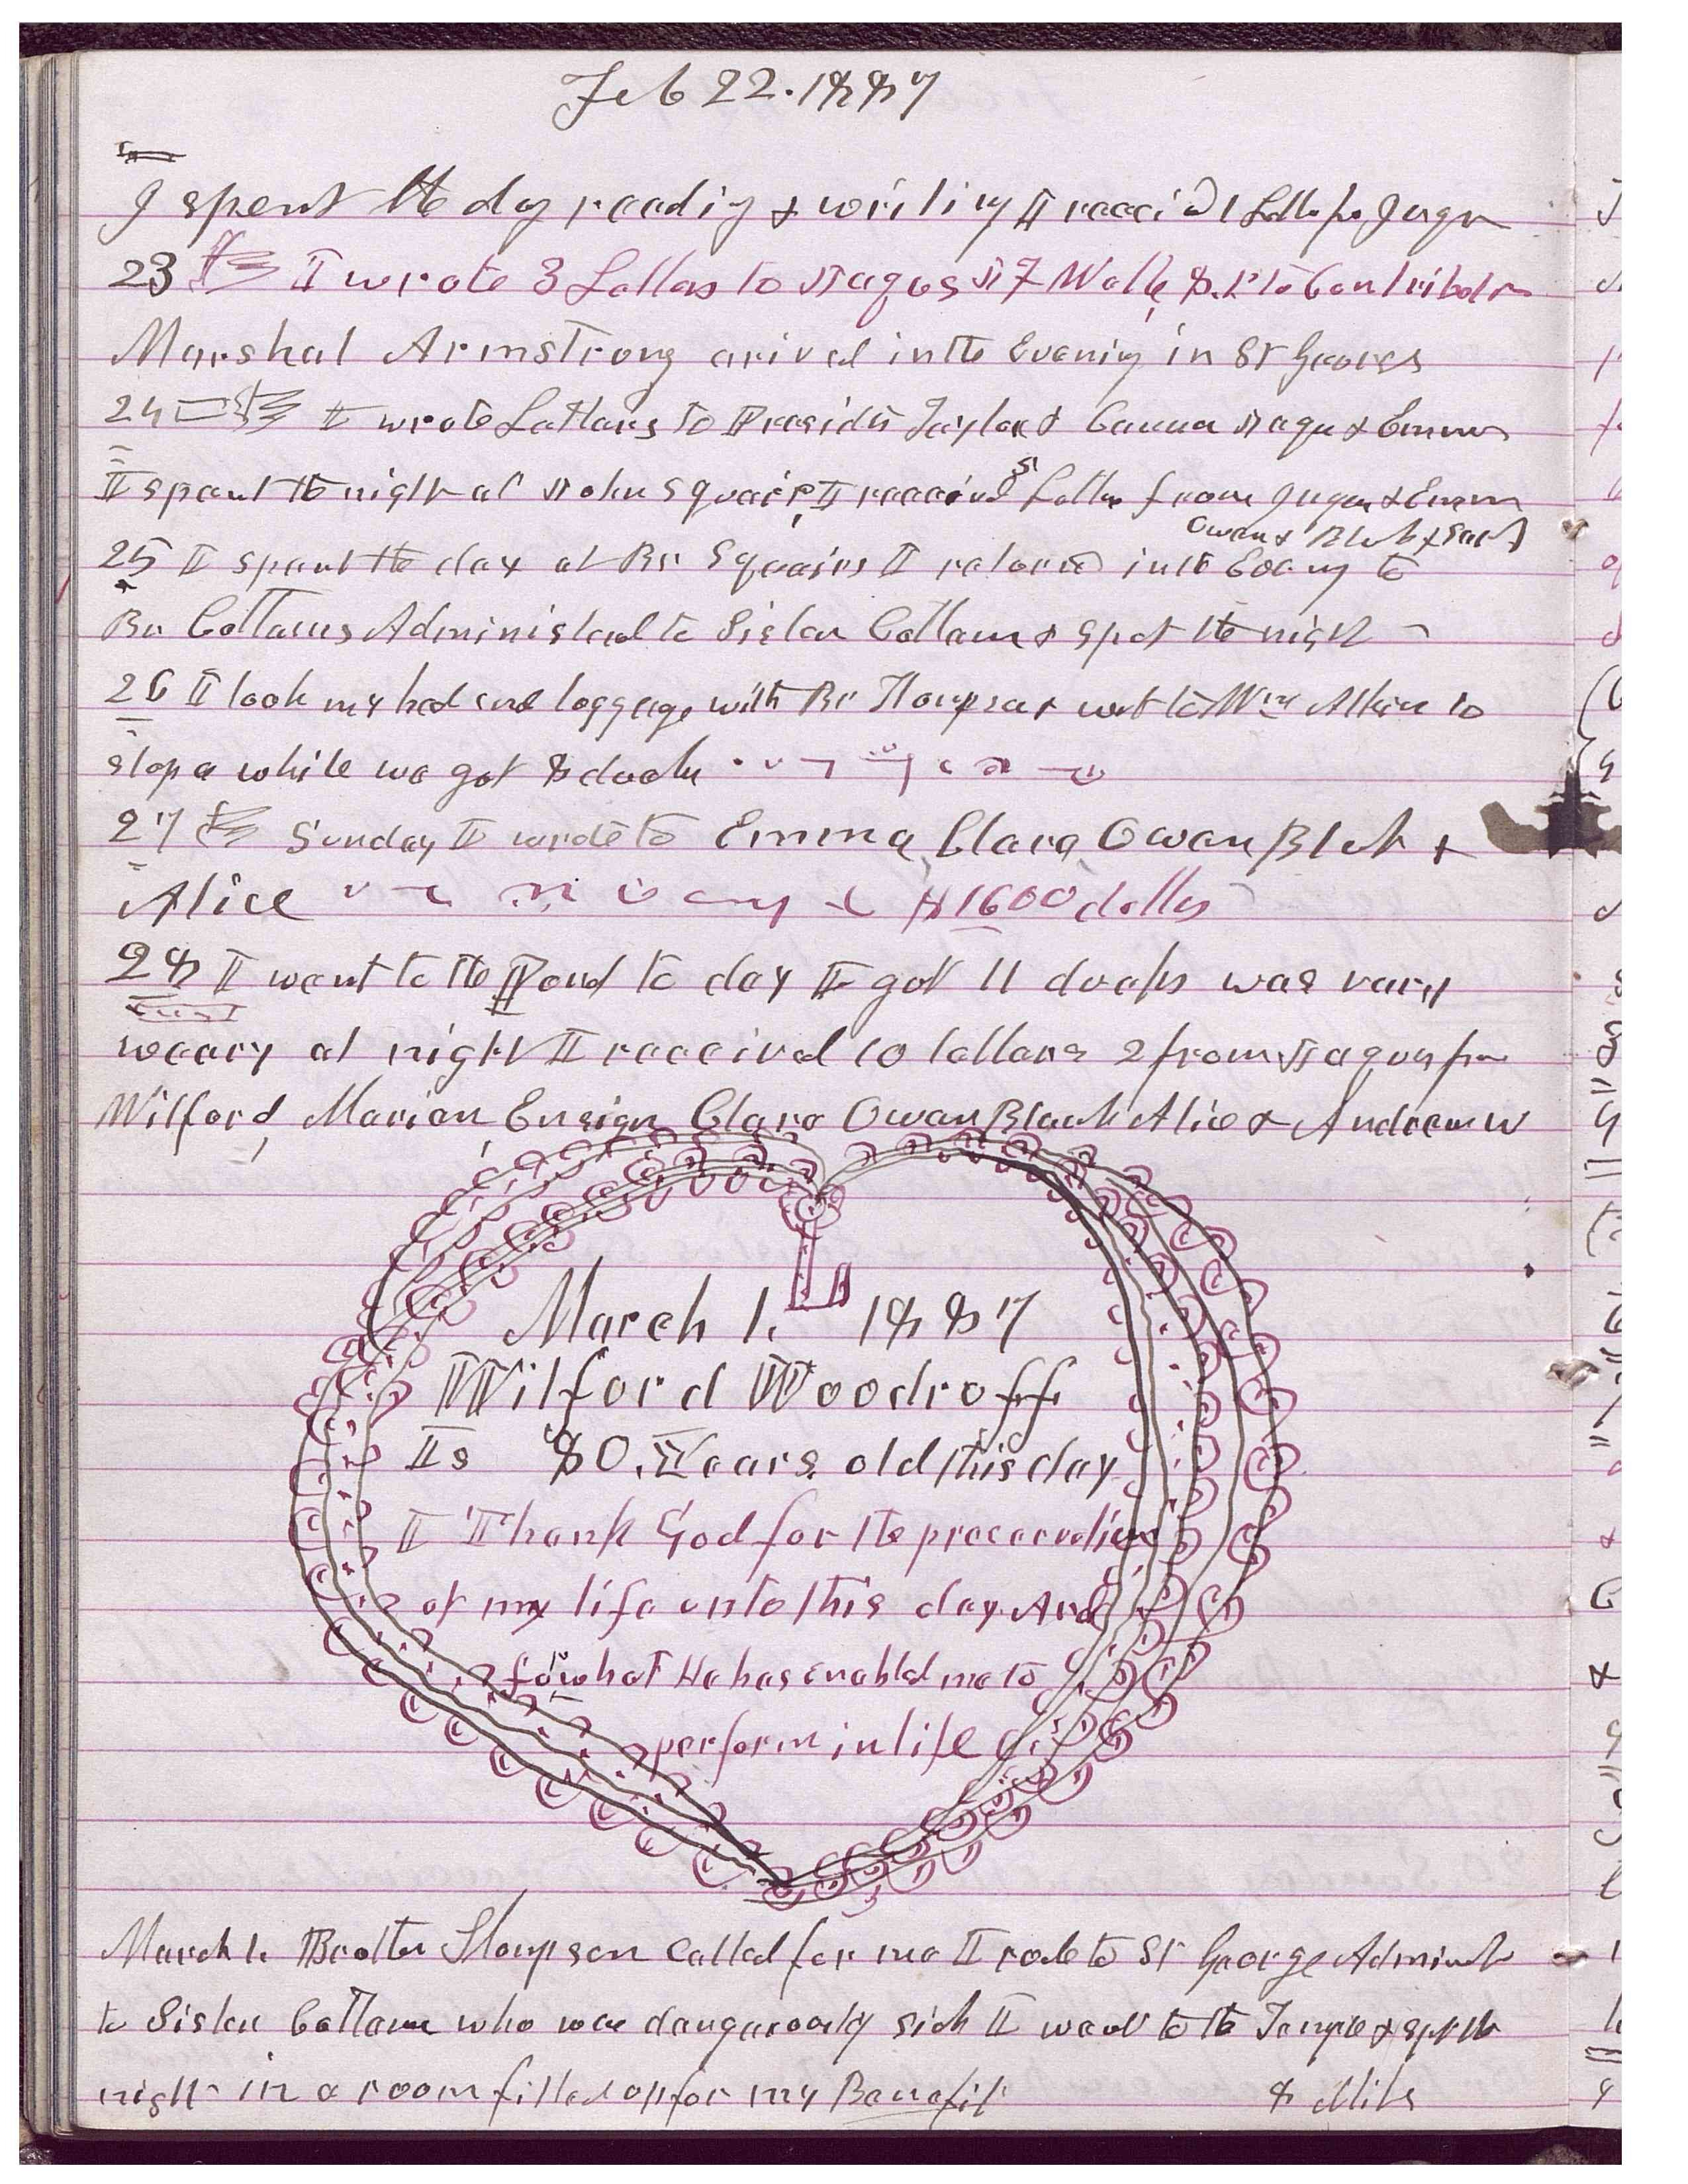 Feb 22. 1887
I spent the day reading & writing I receivd 1 Letter
23 I wrote 3 Letters to Jaques & to Contributor
Marshal Armstrong arived in the Evening in St George
24 I wrote Letters to Presidt Taylor & Cannon Jaques & Emma
I spent the night at John Squires I received 5 Letters from & Emma
Owen & Bleak &
25 I spent the day at Br Squires I returned in the Evening to
Br Cottams Administered to Sister Cottam & spet the night
26 I took my bed and luggage with Br Thompson & wet to Wm Atkin to
stop a while we got 8 ducks
27 Sunday I wrote to Emma Clara Owen Blek &
Alice 1600 dollars
28 I went to the Pond to day I got 11 ducks was very
weary at night I received 10 letters 2 from Jaques from
Wilford, Marion, Ensign Clara Owen Bleak Alice & Andrew
March 1. 1887
Wilford Woodruff
Is 80 Years old this day
I Thank God for the preservation
of my life unto this day. And
for what He has enabled me to
perform in life
March 1. Brother Thompson Called for me I rode to St George Administ
to Sister Cottam who was dangerously sick I went to the Temple & spet the
night in a room fitted up for my Benefit 8 Miles